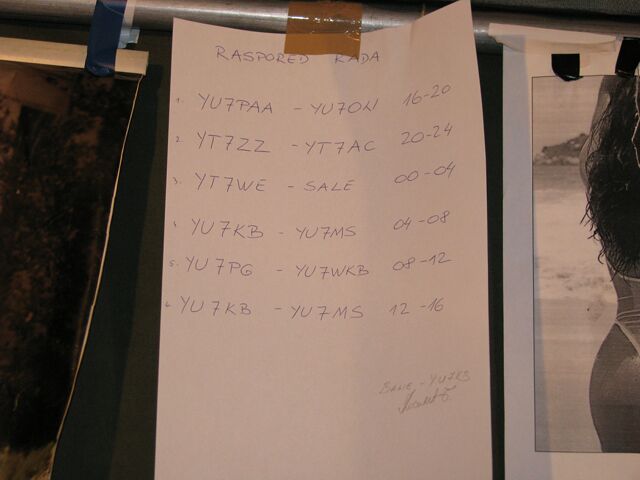 RASPORED RADA
1. YU7PAA - YU7ON 16-20
2. YT7ZZ - YT7AC 20-24
3. YT7WE - SALE 00-04
4. YU7KB - YU7MS 04-08
5. YU7PG - YU7WKB 08-12
6. YU7KB - YU7MS 12-16
- YU7KB